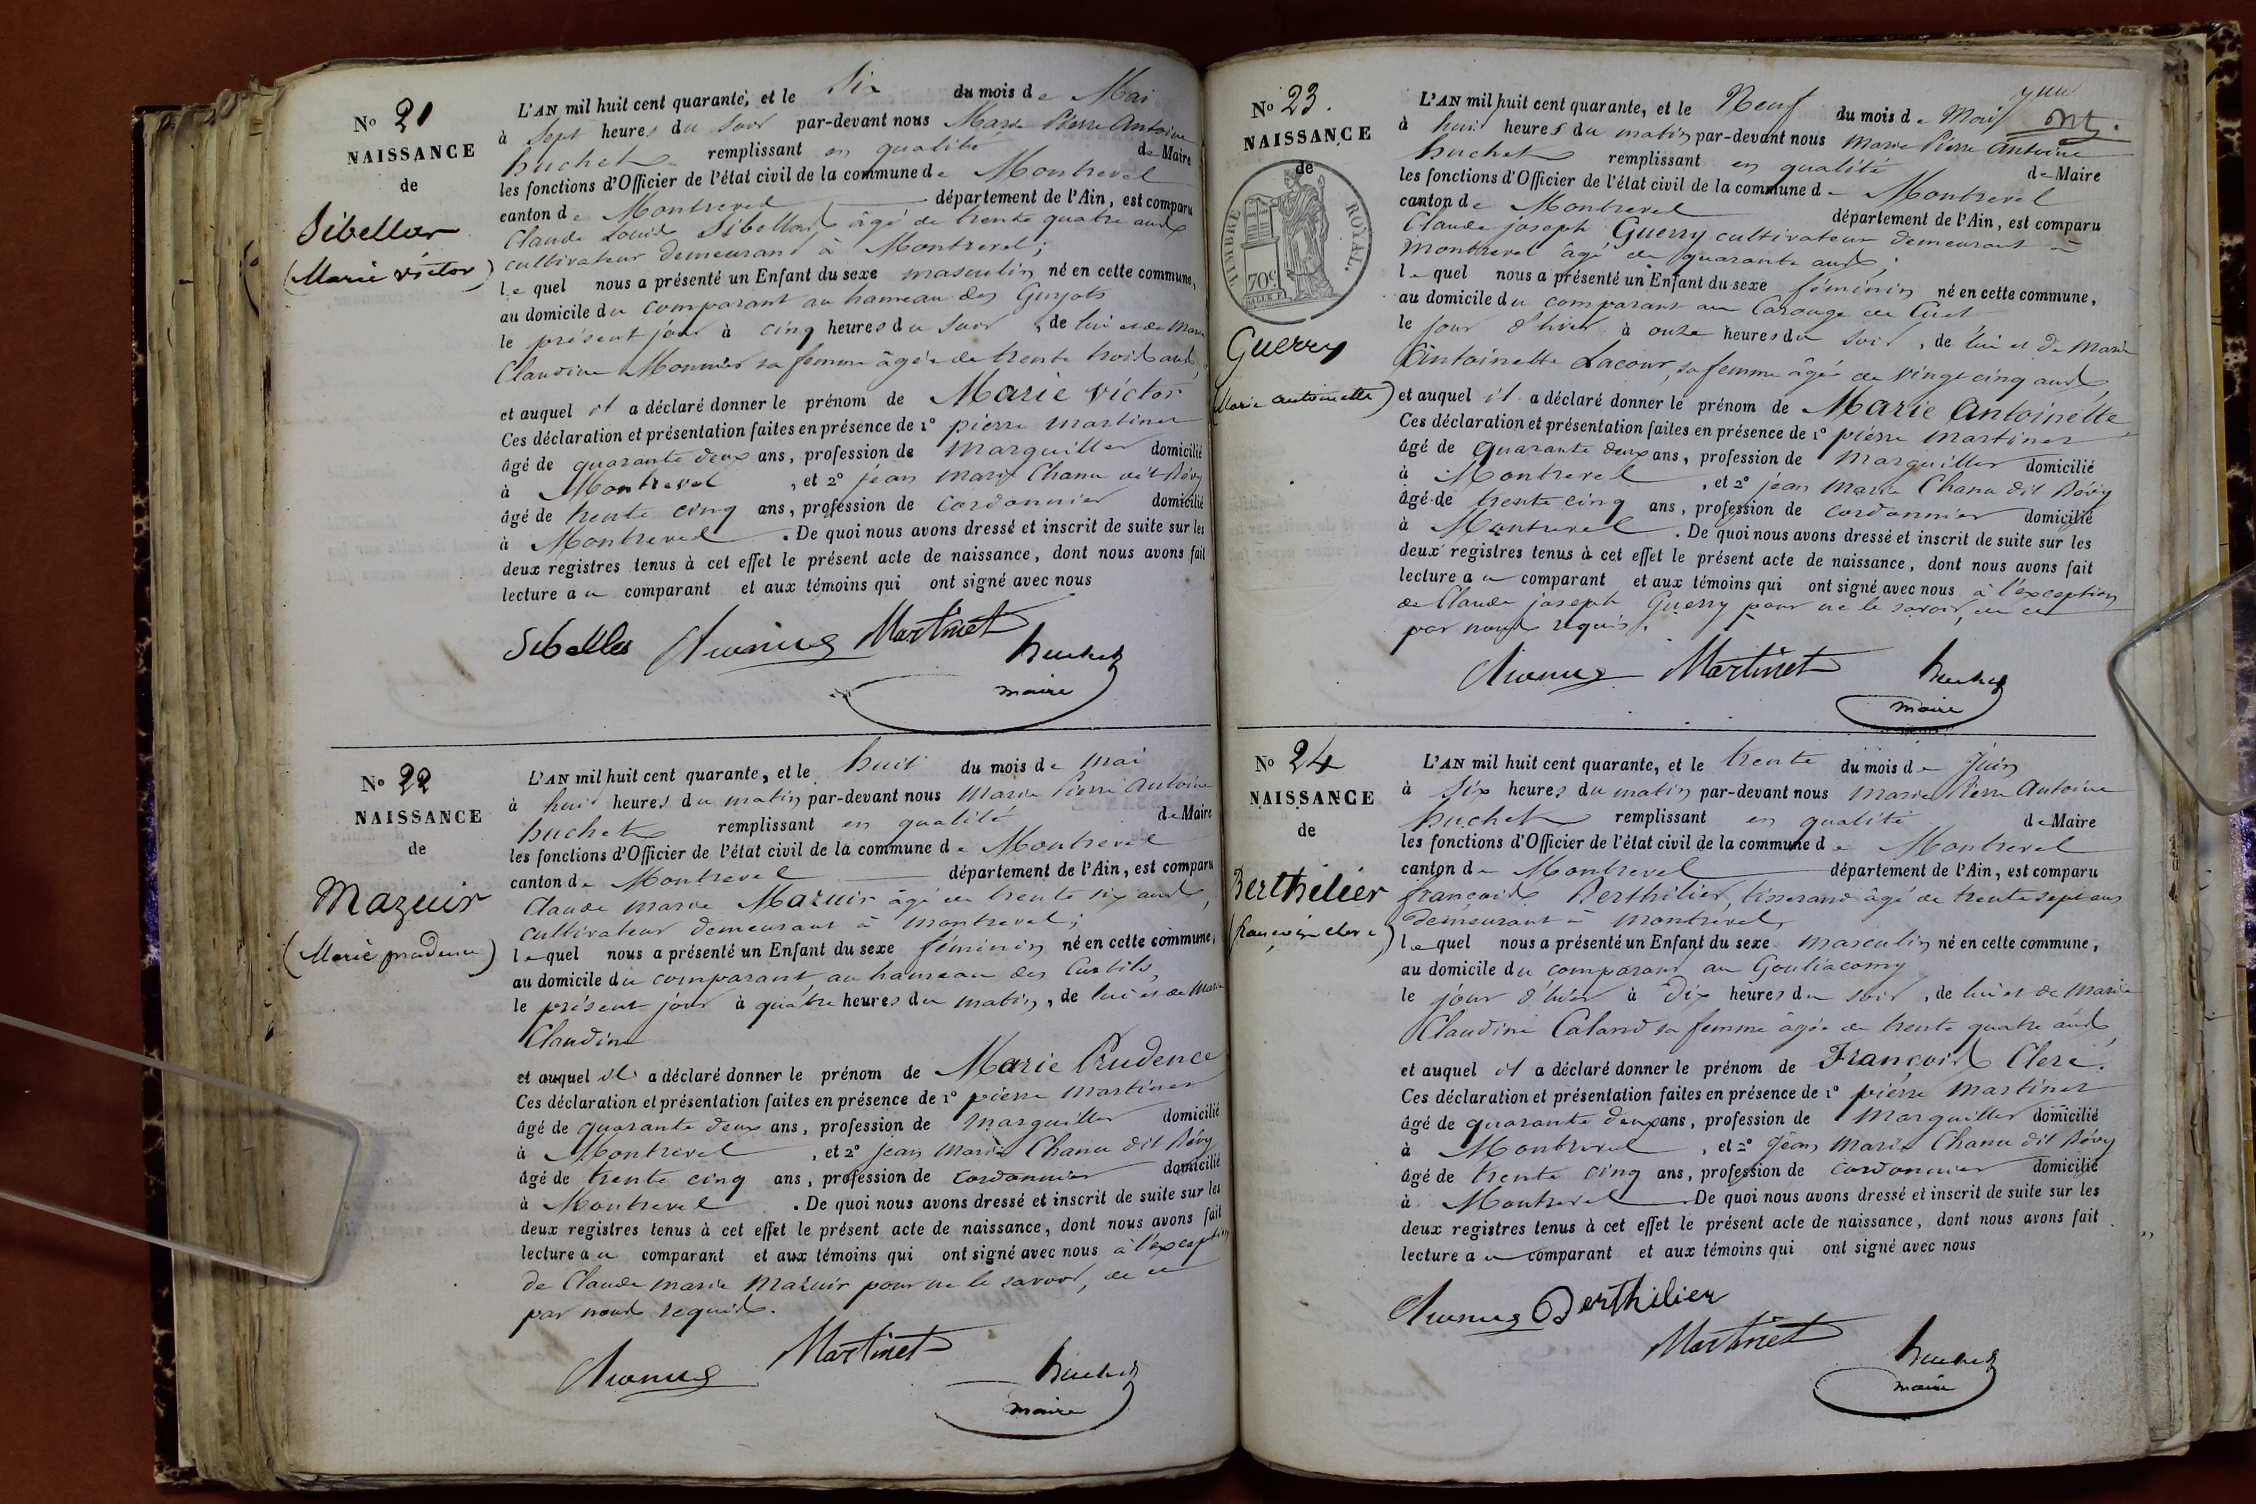 No 21
NAISSANCE
de
Sibellas
(Marie victor)
L'AN mil huit cent quarante, et le Six du mois de Mai
à Sept heures du Soir par-devant nous Marie Pierre Antoine
huchet remplissant en qualité de Maire
les fonctions d'Officier de l'état civil de la commune de Montrevel
canton de Montrevel département de l'Ain, est comparu
Claude Louis Sibellas âgé de trente quatre ans
cultivateur demeurant à Montrevel;
lequel nous a présenté un Enfant du sexe masculin né en cette commune,
au domicile du comparant au hameau des Guyots
le présent jour à cinq heures du soir, de lui et de Marie
Claudine Monnier sa femme âgée de trente trois ans,
et auquel il a déclaré donner le prénom de Marie victor
Ces déclaration et présentation faites en présence de 1° pierre martinet
âgé de quarante deux ans, profession de Marguiller domicilié
à Montrevel, et 2° jean marie Chanu dit Révy
âgé de trente cinq ans, profession de cordonnier domicilié
à Montrevel. De quoi nous avons dressé et inscrit de suite sur les
deux registres tenus à cet effet le présent acte de naissance, dont nous avons fait
lecture au comparant et aux témoins qui ont signé avec nous
Sibellas Martinet huchet
maire
No 22
NAISSANCE
de
Mazuir
(Marie prudence)
L'AN mil huit cent quarante, et le huit du mois de mai
à huit heures du matin par-devant nous Marie Pierre Antoine
huchet remplissant en qualité de Maire
les fonctions d'Officier de l'état civil de la commune de Montrevel
canton de Montrevel département de l'Ain, est comparu
Claude marie Mazuir âgé de trente six ans,
cultivateur demeurant à montrevel;
lequel nous a présenté un Enfant du sexe féminin né en cette commune,
au domicile du comparant au hameau des Curtils,
le présent jour à quatre heures du matin, de lui et de Marie
Claudine
et auquel il a déclaré donner le prénom de Marie Prudence
Ces déclaration et présentation faites en présence de 1° pierre martinet
âgé de quarante deux ans, profession de Marguiller domicilié
à Montrevel, et 2° jean Marie Chanu dit Révy
âgé de trente cinq ans, profession de cordonnier domicilié
à Montrevel. De quoi nous avons dressé et inscrit de suite sur les
deux registres tenus à cet effet le présent acte de naissance, dont nous avons fait
lecture au comparant et aux témoins qui ont signé avec nous à l'exception
de Claude marie Mazuir pour ne le savoir, de ce
par nous requis.
Martinet huchet
maire
No 23.
NAISSANCE
de
TIMBRE ROYAL.
70c.
Guerry
(Marie antoinette)
L'AN mil huit cent quarante, et le Neuf du mois de Mai
à huit heures du matin par-devant nous Marie Pierre Antoine
huchet remplissant en qualité de Maire
les fonctions d'Officier de l'état civil de la commune de Montrevel
canton de Montrevel département de l'Ain, est comparu
Claude joseph Guerry cultivateur demeurant à
Montrevel âgé de quarante ans;
lequel nous a présenté un Enfant du sexe féminin né en cette commune,
au domicile du comparant au Carouge de Cuet
le jour d'hier à onze heures du soir, de lui et de Marie
Antoinette Lacour, sa femme âgée de vingt cinq ans
et auquel il a déclaré donner le prénom de Marie Antoinette
Ces déclaration et présentation faites en présence de 1° pierre martinet
âgé de quarante deux ans, profession de Marguiller domicilié
à Montrevel, et 2° jean Marie Chanu dit Révy
âgé de trente cinq ans, profession de cordonnier domicilié
à Montrevel. De quoi nous avons dressé et inscrit de suite sur les
deux registres tenus à cet effet le présent acte de naissance, dont nous avons fait
lecture au comparant et aux témoins qui ont signé avec nous à l'exception
de Claude joseph Guerry pour ne le savoir, de ce
par nous requis.
Martinet huchet
maire
No 24
NAISSANCE
de
Berthilier
(françois cleré)
L'AN mil huit cent quarante, et le trente du mois de Juin
à Six heures du matin par-devant nous Marie Pierre Antoine
huchet remplissant en qualité de Maire
les fonctions d'Officier de l'état civil de la commune de Montrevel
canton de Montrevel département de l'Ain, est comparu
françois Berthilier, tisserand âgé de trente sept ans
demeurant à Montrevel,
lequel nous a présenté un Enfant du sexe masculin né en cette commune,
au domicile du comparant au
le jour d'hier à dix heures du soir, de lui et de Marie
Claudine Caland sa femme âgée de trente quatre ans,
et auquel il a déclaré donner le prénom de François Cleré.
Ces déclaration et présentation faites en présence de 1° pierre martinet
âgé de quarante deux ans, profession de Marguiller domicilié
à Montrevel, et 2° Jean Marie Chanu dit Révy
âgé de trente cinq ans, profession de cordonnier domicilié
à Montrevel De quoi nous avons dressé et inscrit de suite sur les
deux registres tenus à cet effet le présent acte de naissance, dont nous avons fait
lecture au comparant et aux témoins qui ont signé avec nous
Berthilier
Martinet huchet
maire